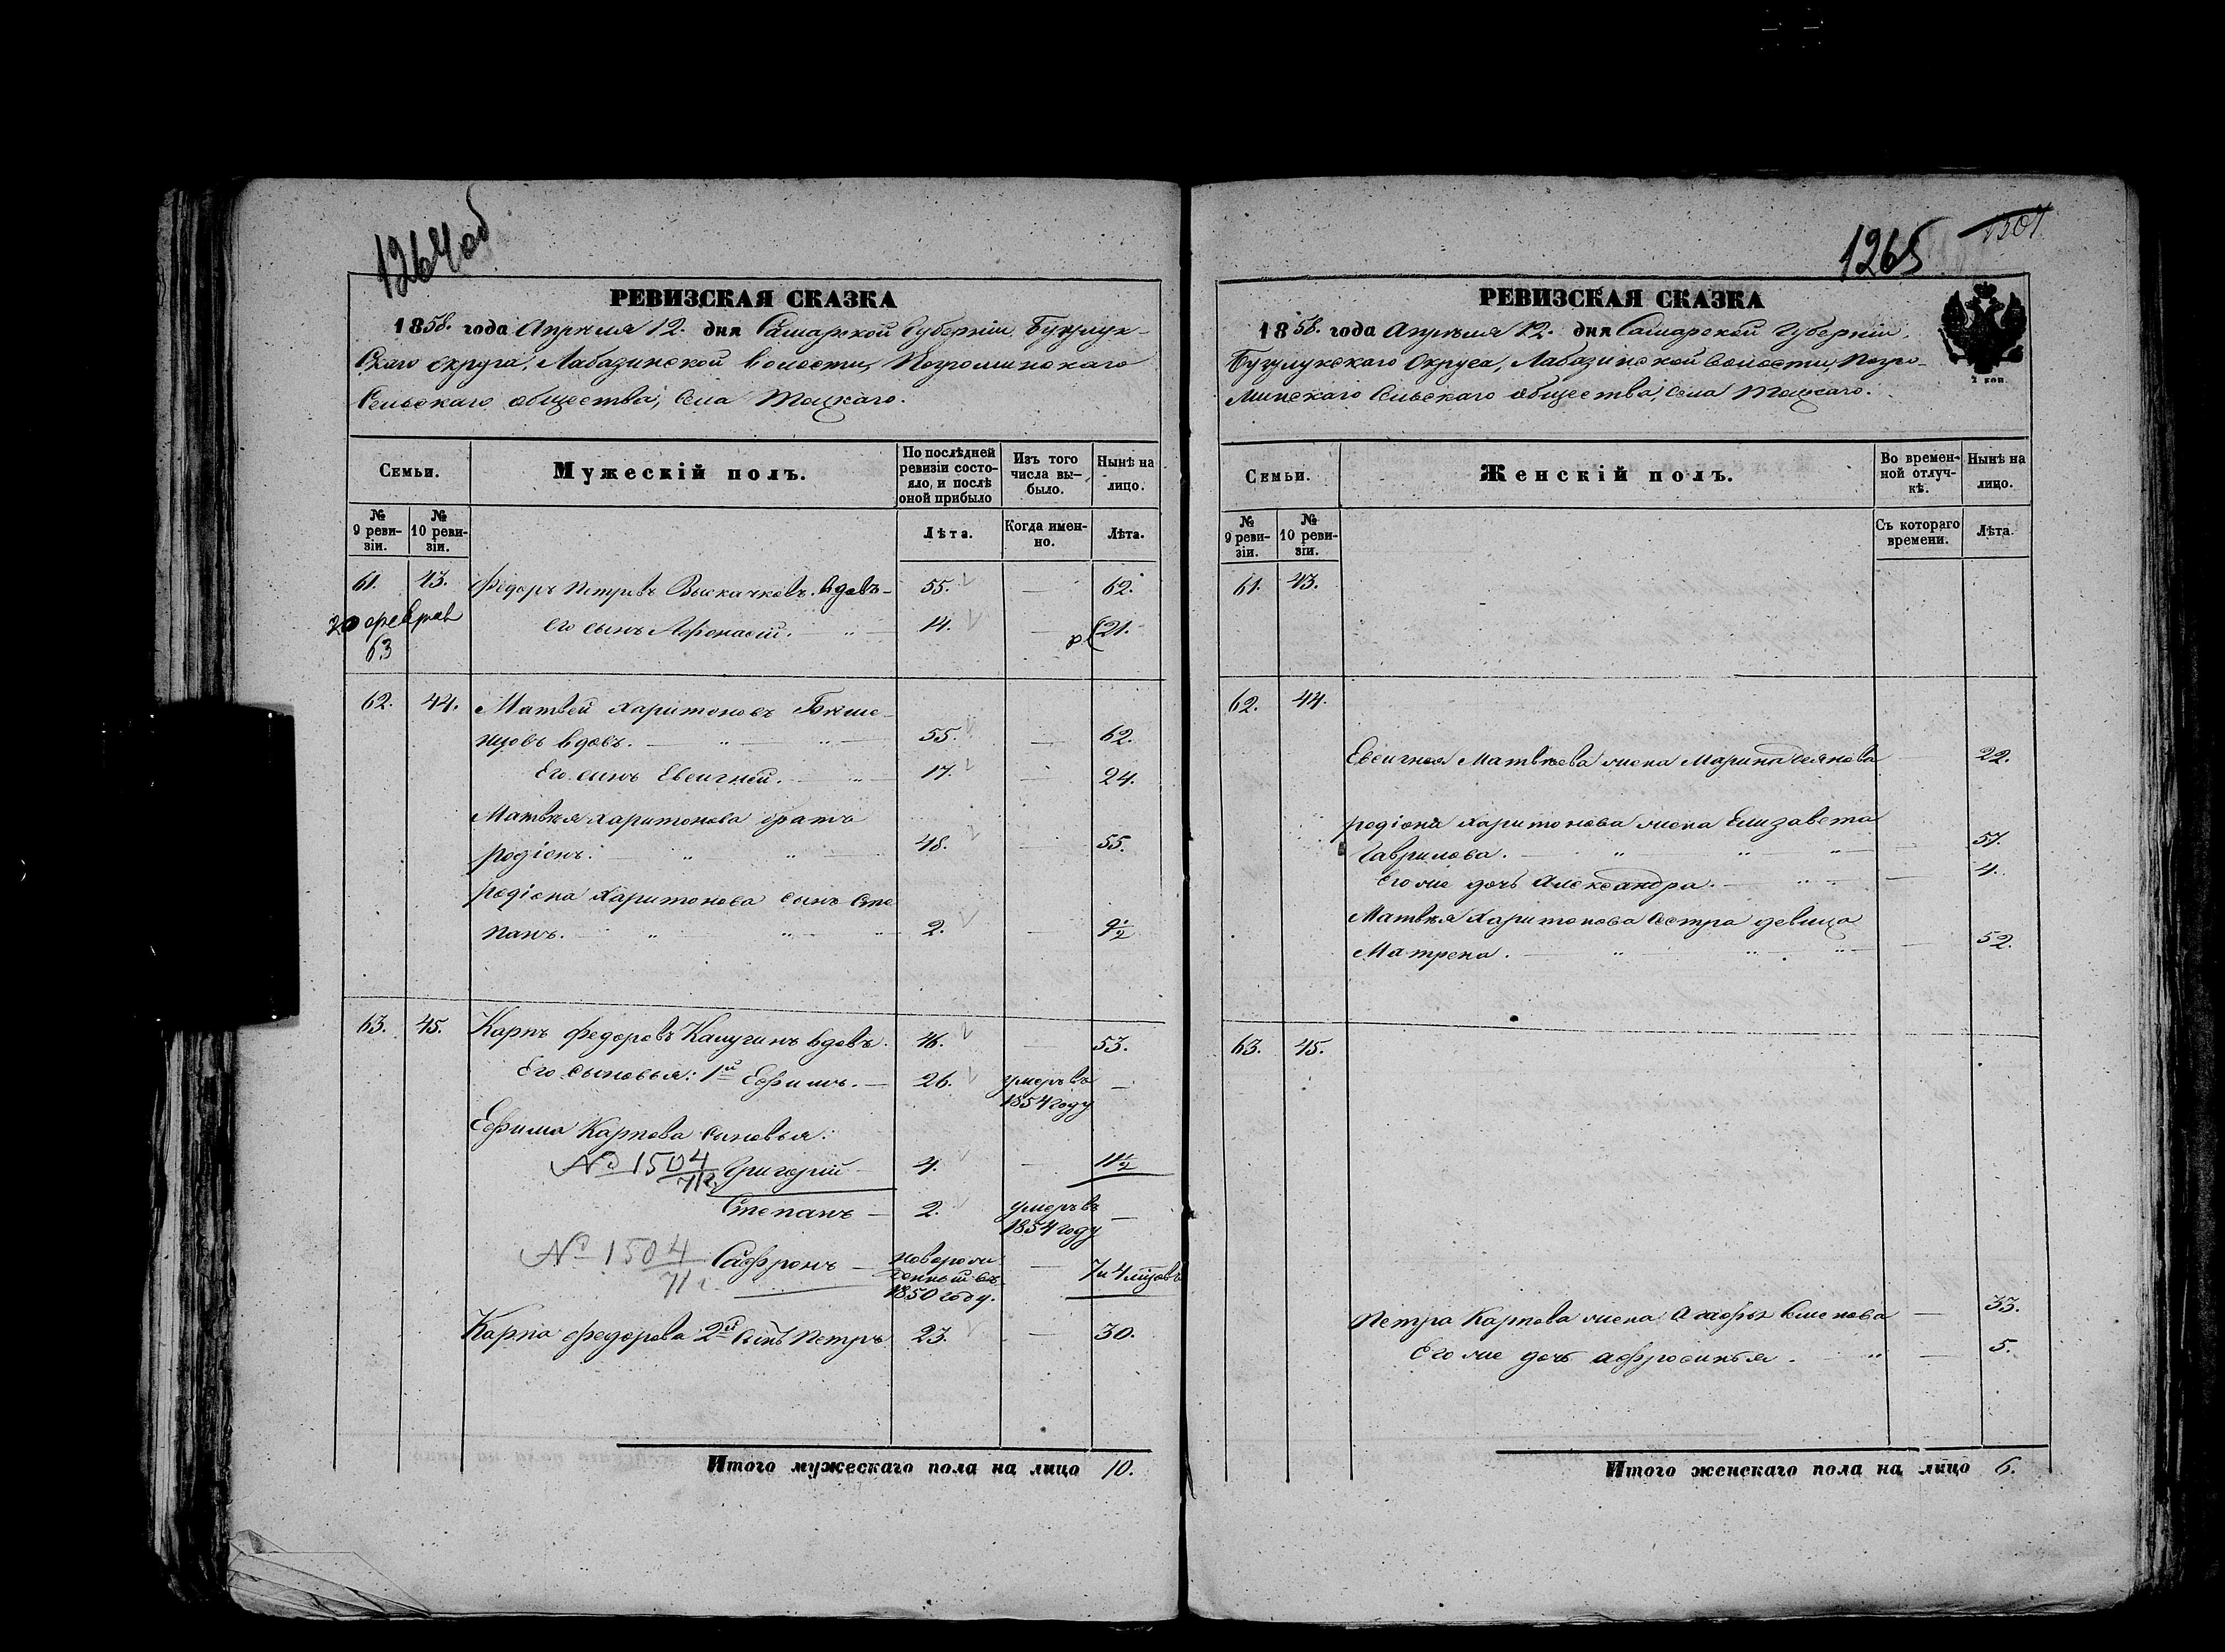 1264об
РЕВИЗСКАЯ СКАЗКА
1858. года Апрѣля 12. дня Самарской Губерніи Бузулук-
скаго округа, Лабазинской волости, Погроминскаго
Сельскаго общества, Села Тоцкаго.
Семьи.
Мужескій полъ.
По послѣдней ревизіи состо-
яло, и послѣ оной прибыло
Изъ того числа вы-
было.
Нынѣ на лицо.
№ 9 реви-
зіи.
№ 10 реви-
зіи.
Лѣта.
Когда имен-
но.
Лѣта.
61. 43. Федоръ Петровъ Выскачковъ. вдовъ 55. — 62.
20 феврал
63
его сынъ Афонасій. 14. — 21.
62. 44. Матвей Харитоновъ
вдовъ. 55. — 62.
Его сынъ Евсигней. 17. — 24.
Матвѣя Харитонова братъ
родіонъ. 48. — 55.
родіона Харитонова сынъ Сте
панъ. 2. — 9½
63. 45. Карпъ федоровъ Калугинъ вдовъ. 46. — 53.
Его сыновья: 1й Ефимъ. — 26. умеръ въ
1854 году —
Ефима Карпова сыновья:
№ 1504 Григорій 4. — 11½
Степанъ — 2. умеръ въ
1854 году —
№ 1504
71 Сафронъ — новорож
денный въ
1850 году. — 7 и 4 мѣсов
Карпа федорова 2й сынъ Петръ 23. — 30.
Итого мужескаго пола на лицо 10.
1265 1301
РЕВИЗСКАЯ СКАЗКА
1858. года Апрѣля 12. дня Самарской Губерніи,
Бузулукскаго Округа, Лабазинской волости, Погро-
минскаго Сельскаго общества, Села Тоцкаго.
2 коп.
Семьи.
Женскій полъ.
Во времен-
ной отлуч-
кѣ.
Нынѣ на лицо.
№ 9 реви-
зіи.
№ 10 реви-
зіи.
Съ котораго времени.
Лѣта.
61. 43.
62. 44.
Евсигнея Матвѣева жена Марина — 22.
родіона Харитонова жена Елизавета
Гаврилова. 57.
Его же дочь Александра. — 4.
Матвѣя Харитонова сестра девица
Матрена. 52.
63. 45.
Петра Карпова жена — 33.
Его же дочь Афросинья. — 5.
Итого женскаго пола на лицо 6.